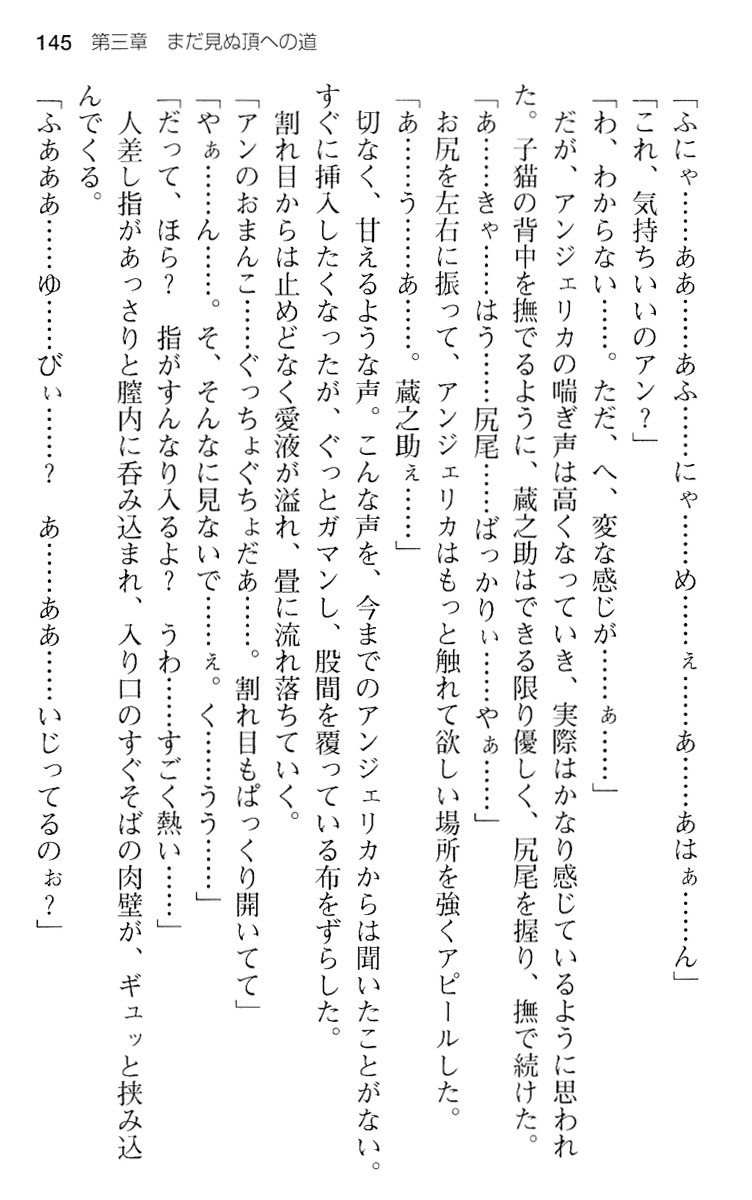 145 第三章 まだ見ぬ頂への道
「ふにゃ……ああ……あふ……にゃ……め……ぇ……あ……あはぁ……ん」
「これ、気持ちいいのアン?」
「わ、わからない……。ただ、へ、変な感じが……ぁ……」
だが、アンジェリカの喘ぎ声は高くなっていき、実際はかなり感じているように思われ
た。子猫の背中を撫でるように、蔵之助はできる限り優しく、尻尾を握り、撫で続けた。
「あ……きゃ……はう……尻尾……ばっかりぃ……やぁ……」
お尻を左右に振って、アンジェリカはもっと触れて欲しい場所を強くアピールした。
「あ……う……あ……。蔵之助ぇ……」
切なく、甘えるような声。こんな声を、今までのアンジェリカからは聞いたことがない。
すぐに挿入したくなったが、ぐっとガマンし、股間を覆っている布をずらした。
割れ目からは止めどなく愛液が溢れ、畳に流れ落ちていく。
「アンのおまんこ……ぐっちょぐちょだあ……。割れ目もぱっくり開いてて」
「やぁ……ん……。そ、そんなに見ないで……ぇ。く……うう……」
「だって、ほら? 指がすんなり入るよ? うわ……すごく熱い……」
人差し指があっさりと膣内に呑み込まれ、入り口のすぐそばの肉壁が、ギュッと挟み込
んでくる。
「ふぁああ……ゆ……びぃ……? あ……ああ……いじってるのぉ?」